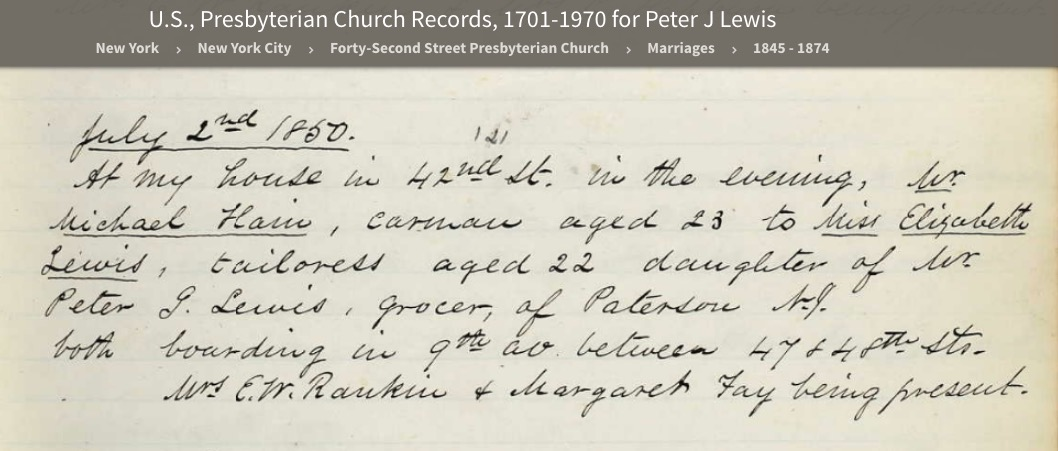 U.S., Presbyterian Church Records, 1701-1970 for Peter J Lewis
New York › New York City › Forty-Second Street Presbyterian Church › Marriages › 1845 - 1874
July 2nd 1850.
121
At my house in 42nd St. in the evening, Mr.
Michael Hain, carman aged 23 to Miss Elizabeth
Lewis, tailoress aged 22 daughter of Mr.
Peter G. Lewis, grocer, of Paterson N.J.
both boarding in 9th av. between 47 & 48th Sts.
Mrs E.W. Rankin & Margaret Fay being present.